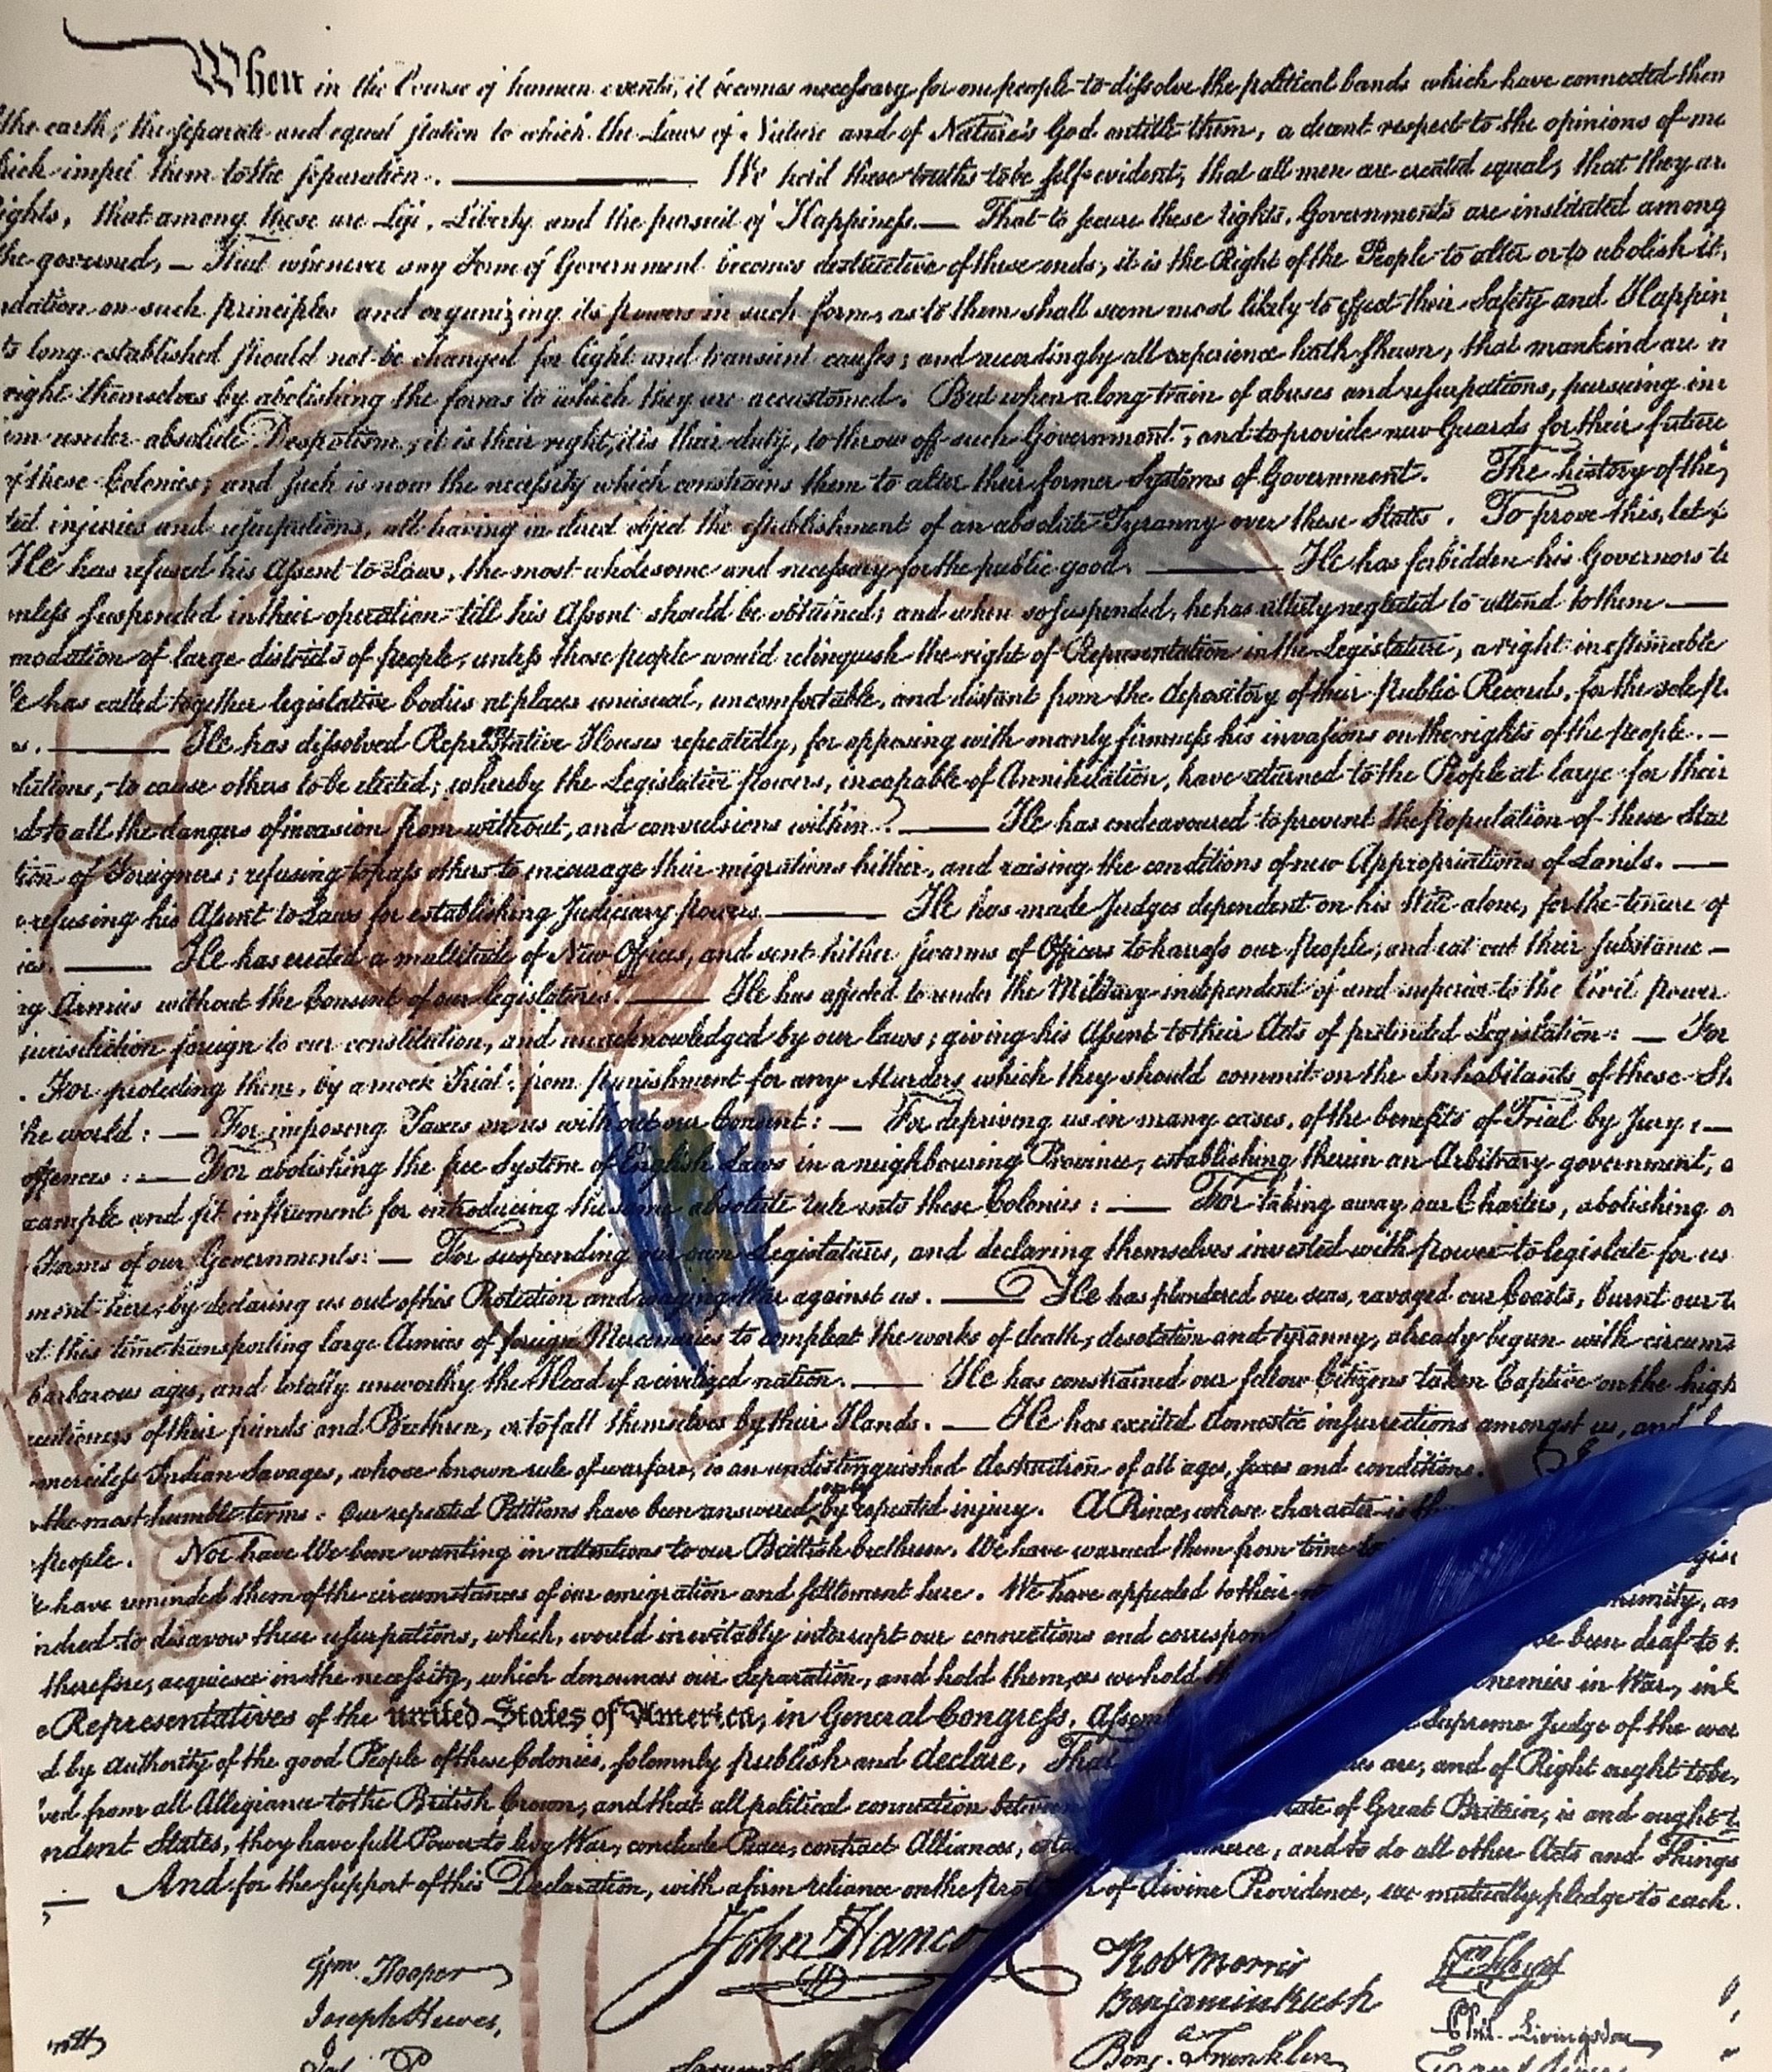 When in the Course of human events, it becomes necessary for one people to dissolve the political bands which have connected them
the earth, the separate and equal station to which the Laws of Nature and of Nature's God entitle them, a decent respect to the opinions of
impel them to the separation. We hold these truths to be self-evident, that all men are created equal, that they ar
ights, that among these are Life, Liberty and the pursuit of Happiness.— That to secure these rights, Governments are instituted among
the governed, — That whenever any Form of Government becomes destructive of these ends, it is the Right of the People to alter or to abolish it,
dation on such principles and organizing its powers in such form, as to them shall seem most likely to effect their Safety and Happin
long established should not be changed for light and transient causes; and accordingly all experience hath shewn, that mankind are
right themselves by abolishing the forms to which they are accustomed. But when a long train of abuses and usurpations, pursuing
under absolute Despotism, it is their right, it is their duty, to throw off such Government, and to provide new Guards for their future
of these Colonies; and such is now the necessity which constrains them to alter their former Systems of Government. The history of the
ted injuries and usurpations, all having in direct object the establishment of an absolute Tyranny over these States. To prove this, let
He has refused his Assent to Laws, the most wholesome and necessary for the public good. — He has forbidden his Governors to
unless suspended in their operation till his Assent should be obtained; and when so suspended, he has utterly neglected to attend to them —
modation of large districts of people, unless those people would relinquish the right of Representation in the Legislature, a right inestimable
He has called together legislative bodies at places unusual, uncomfortable, and distant from the depository of their Public Records, for the sole
— He has dissolved Representative Houses repeatedly, for opposing with manly firmness his invasions on the rights of the people. —
lutions, to cause others to be elected; whereby the Legislative powers, incapable of Annihilation, have returned to the People at large for their
d to all the dangers of invasion from without, and convulsions within. — He has endeavoured to prevent the Population of these Stat
tion of Foreigners; refusing to pass others to encourage their migrations hither, and raising the conditions of new Appropriations of Lands. —
refusing his Assent to Laws for establishing Judiciary powers. — He has made Judges dependent on his Will alone, for the tenure of
— He has erected a multitude of New Offices, and sent hither swarms of Officers to harrass our people, and eat out their substance —
ng Armies without the Consent of our legislatures. — He has affected to render the Military independent of and superior to the Civil power
jurisdiction foreign to our constitution, and unacknowledged by our laws; giving his Assent to their Acts of pretended Legislation: — For
. For protecting them, by a mock Trial, from punishment for any Murders which they should commit on the Inhabitants of these St
he world: — For imposing Taxes on us without our Consent: — For depriving us in many cases, of the benefits of Trial by Jury: —
offences: — For abolishing the free System of English Laws in a neighbouring Province, establishing therein an Arbitrary government,
xample and fit instrument for introducing the same absolute rule into these Colonies: — For taking away our Charters, abolishing
Forms of our Governments: — For suspending our own Legislatures, and declaring themselves invested with power to legislate for us
ment here, by declaring us out of his Protection and waging War against us. — He has plundered our seas, ravaged our Coasts, burnt our
at this time transporting large Armies of foreign Mercenaries to compleat the works of death, desolation and tyranny, already begun with circums
barbarous ages, and totally unworthy the Head of a civilized nation. — He has constrained our fellow Citizens taken Captive on the high
cutioners of their friends and Brethren, or to fall themselves by their Hands. — He has excited domestic insurrections amongst us, and
merciless Indian Savages, whose known rule of warfare, is an undistinguished destruction of all ages, sexes and conditions.
the most humble terms: Our repeated Petitions have been answered only by repeated injury. A Prince, whose character is
people. Nor have We been wanting in attentions to our Brittish brethren. We have warned them from time to
have reminded them of the circumstances of our emigration and settlement here. We have appealed to their
indred to disavow these usurpations, which, would inevitably interrupt our connections and correspon been deaf to
therefore, acquiesce in the necessity, which denounces our Separation, and hold them, as we hold nemies in War, in
Representatives of the united States of America, in General Congress, Assem Supreme Judge of the wor
d by authority of the good People of these Colonies, solemnly publish and declare, That are, and of Right ought to be,
ved from all Allegiance to the British Crown, and that all political connection between tate of Great Britain, is and ought
ndent States, they have full Power to levy War, conclude Peace, contract Alliances, esta merce, and to do all other Acts and Things
— And for the support of this Declaration, with a firm reliance on the prot of divine Providence, we mutually pledge to each
John Hanco
Wm. Hooper Robt Morris
Joseph Hewes, Benjamin Rush
Phil. Livingston
Benj. Franklin